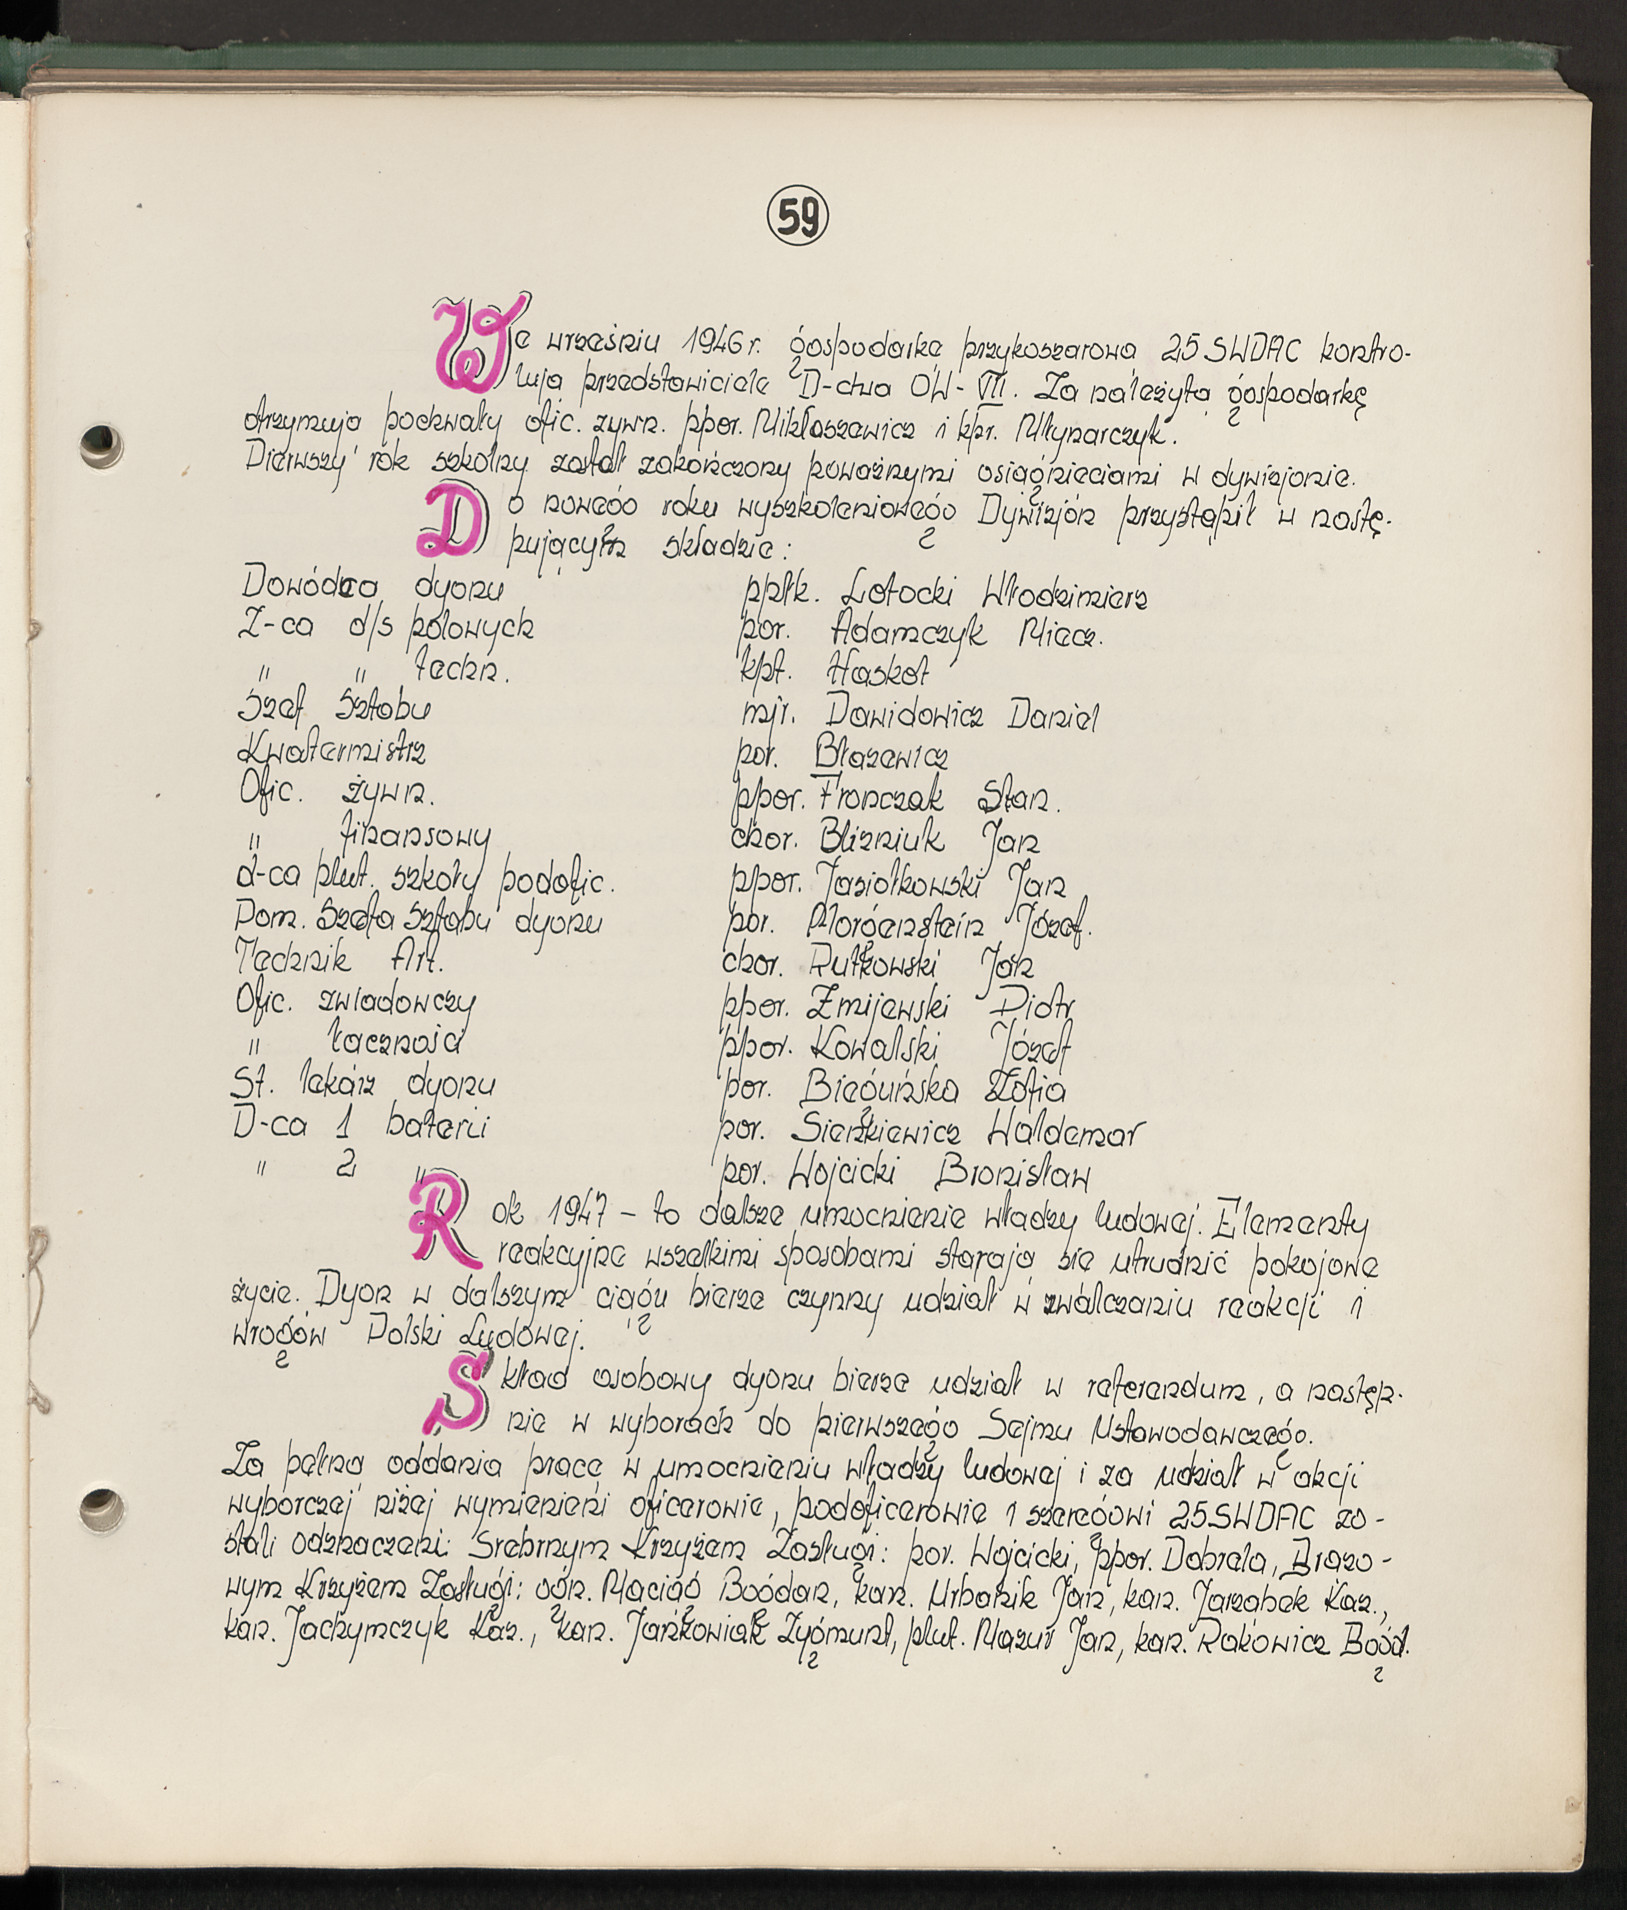 59
We wrześniu 1946 r. gospodarkę przykoszarową 25 SWDAC kontro-
lują przedstawiciele D-ctwa OW-VII. Za należytą gospodarkę
otrzymują pochwały ofic. żywn. ppor. Mikłaszewicz i kpr. Młynarczyk.
Pierwszy rok szkolny został zakończony poważnymi osiągnięciami w dywizjonie.
Do nowego roku wyszkoleniowego Dywizjon przystąpił w nastę-
pującym składzie:
Dowódca dyonu ppłk. Łotocki Włodzimierz
Z-ca d/s polowych por. Adamczyk Miecz.
" " techn. kpt. Haskot
Szef Sztabu mjr. Dawidowicz Daniel
Kwatermistrz por. Błazewicz
Ofic. żywn. ppor. Fronczak Stan.
" finansowy chor. Blizniuk Jan
d-ca plut. szkoły podofic. ppor. Jasiołkowski Jan
Pom. Szefa Sztabu dyonu por. Morgenstein Józef.
Technik Art. chor. Rutkowski Jan
Ofic. zwiadowczy ppor. Zmijewski Piotr
" łączności ppor. Kowalski Józef
St. lekarz dyonu por. Bieguńska Zofia
D-ca 1 baterii por. Sienkiewicz Waldemar
" 2 " por. Wojcicki Bronisław
Rok 1947 – to dalsze umocnienie władzy ludowej. Elementy
reakcyjne wszelkimi sposobami starają się utrudnić pokojowe
życie. Dyon w dalszym ciągu bierze czynny udział w zwalczaniu reakcji i
wrogów Polski Ludowej.
Skład osobowy dyonu bierze udział w referendum, a następ-
nie w wyborach do pierwszego Sejmu Ustawodawczego.
Za pełną oddania pracę w umocnieniu władzy ludowej i za udział w akcji
wyborczej niżej wymienieni oficerowie, podoficerowie i szeregowi 25 SWDAC zo-
stali odznaczeni: Srebrnym Krzyżem Zasługi: por. Wojcicki, ppor. Dobrela, Brązo-
wym Krzyżem Zasługi: ogn. Maciąg Bogdan, kan. Urbanik Jan, kan. Jarząbek Kaz.,
kan. Jachymczyk Kaz., kan. Jankowiak Zygmunt, plut. Mazur Jan, kan. Rakowicz Bogd.